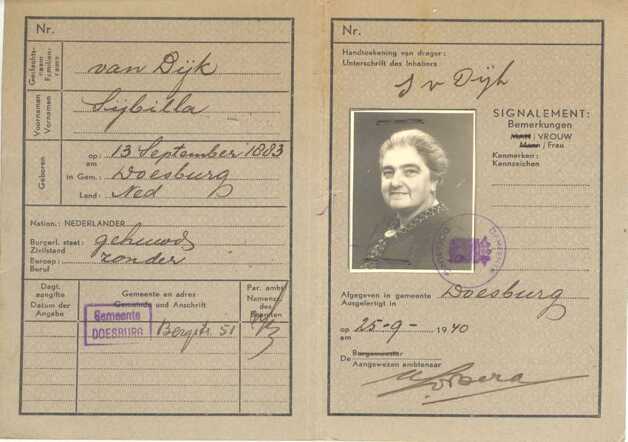 Nr.
Geslachts-naam Familien-name
van Dijk
Voornamen Vornamen
Sijbilla
Geboren
op: am 13 September 1883
in Gem.: Doesburg
Land: Ned
Nation.: NEDERLANDER
Burgerl. staat: Zivilstand gehuwd
Beroep: Beruf zonder
Dagt. aangifte Datum der Angabe
Gemeente en adres Gemeinde und Anschrift
Par. ambt. Namensz. des Beamten
Gemeente DOESBURG
Bergstr. 51
Nr.
Handtekening van drager:
Unterschrift des Inhabers
S v Dijk
SIGNALEMENT:
Bemerkungen
Man / VROUW
Mann / Frau
Kenmerken:
Kennzeichen
Afgegeven in gemeente Doesburg
Ausgefertigt in
op am 25-9- 1940
De Burgemeester
Aangewezen ambtenaar